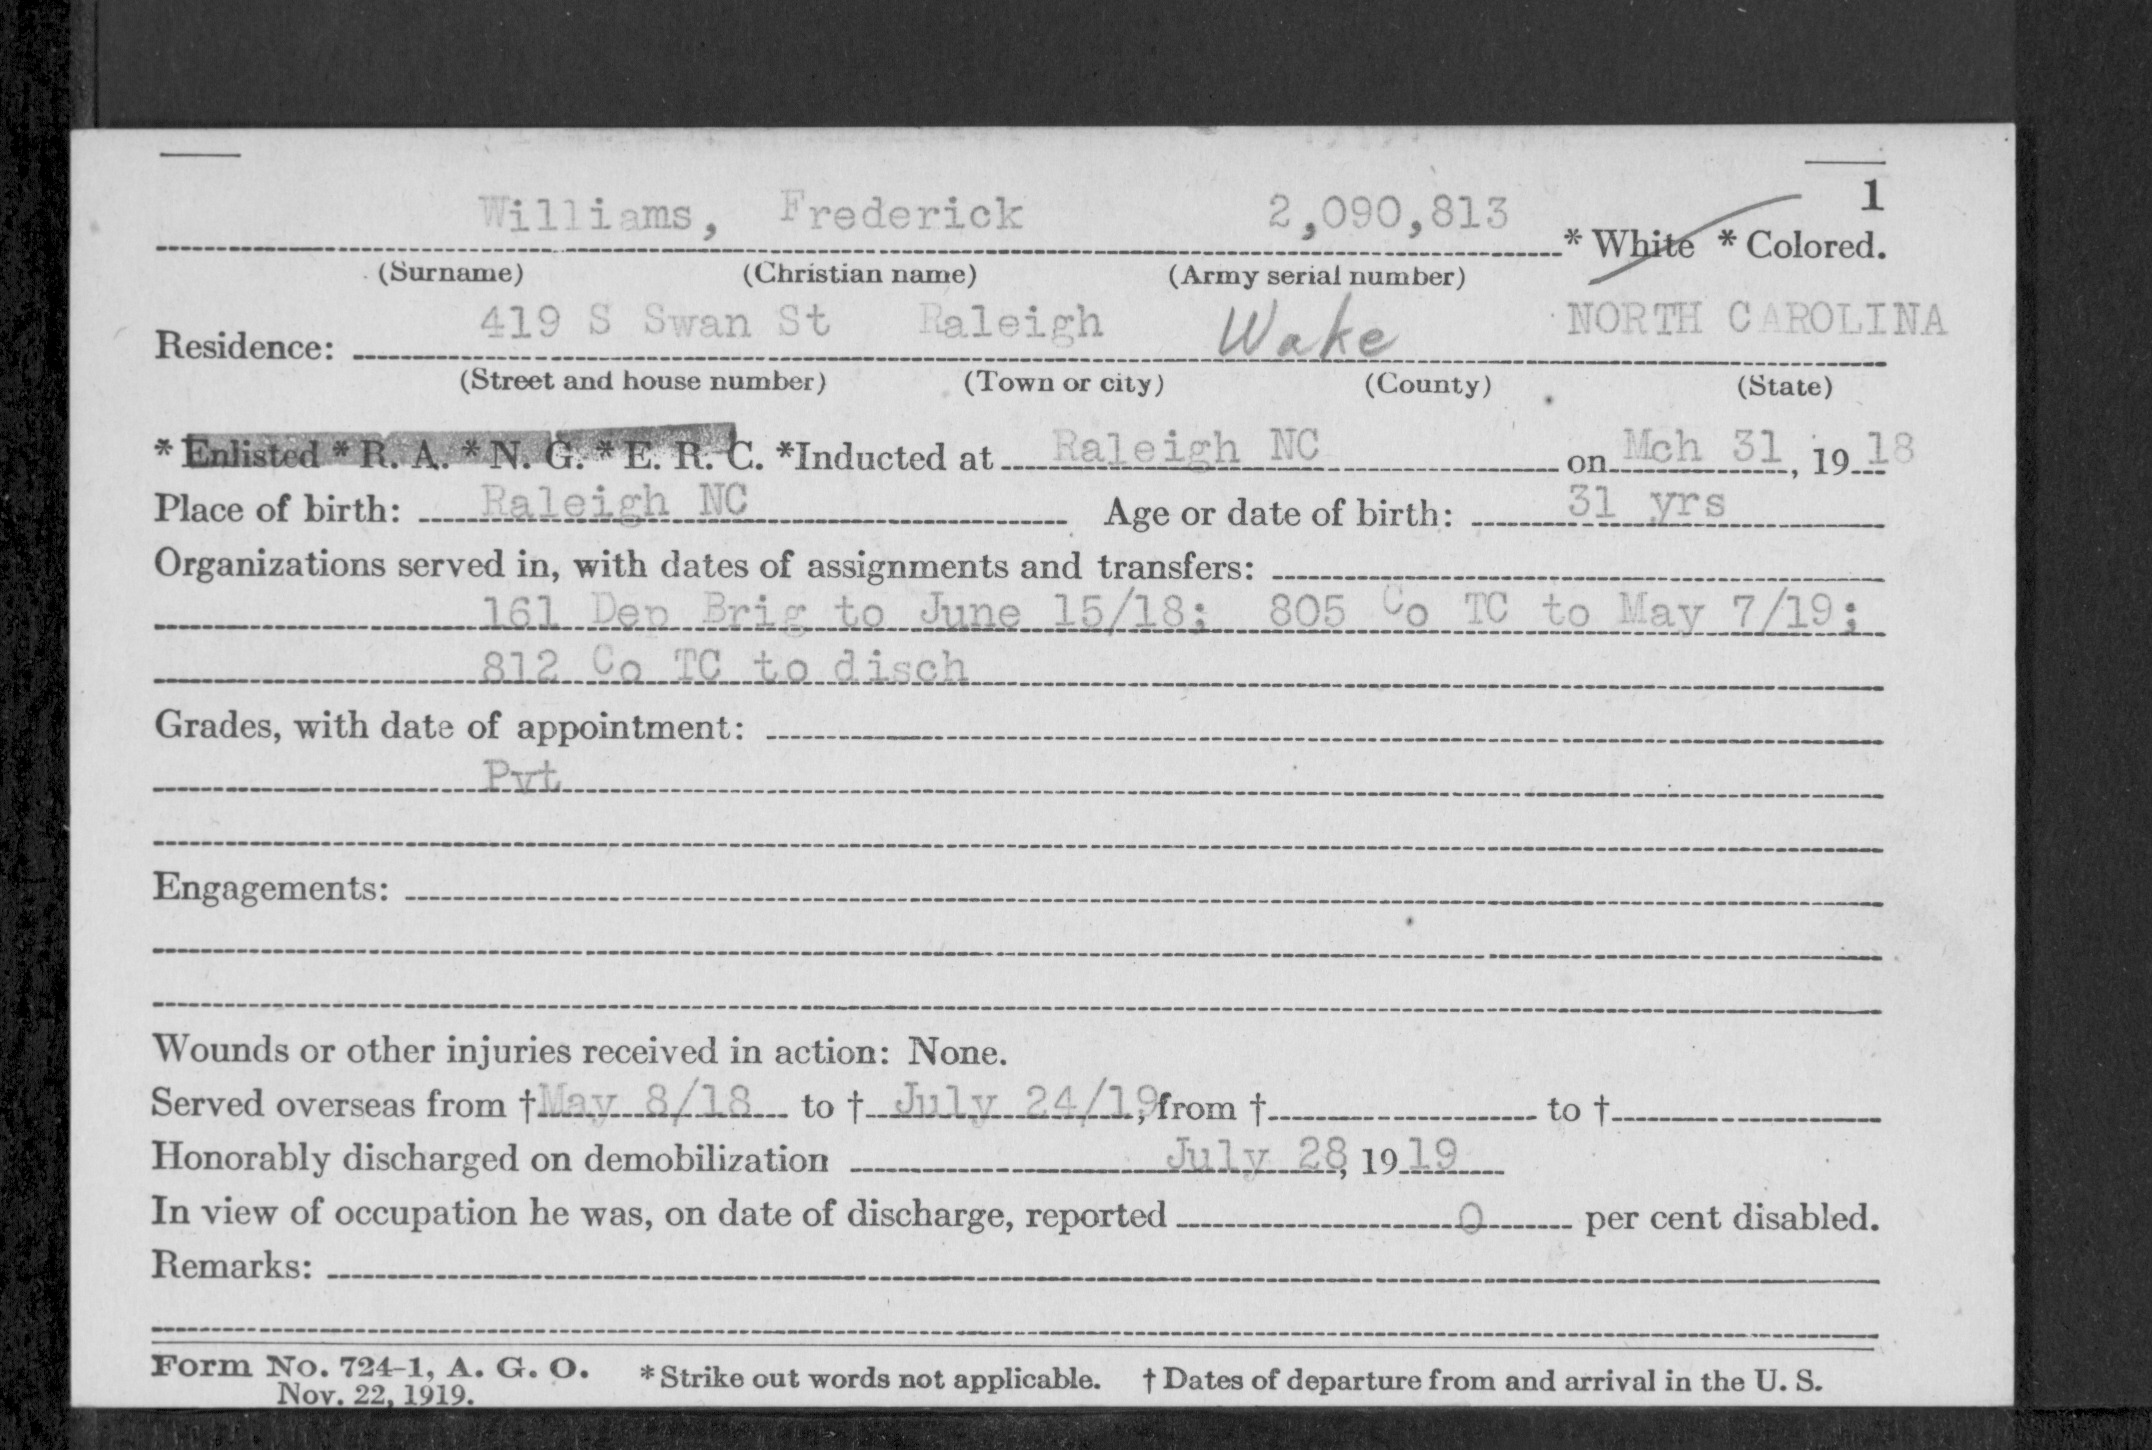 1
Williams, Frederick 2,090,813 * White * Colored.
(Surname) (Christian name) (Army serial number)
Residence: 419 S Swan St Raleigh Wake NORTH CAROLINA
(Street and house number) (Town or city) (County) (State)
* Enlisted * R. A. * N. G. * E. R. C. *Inducted at Raleigh NC on Mch 31, 1918
Place of birth: Raleigh NC Age or date of birth: 31 yrs
Organizations served in, with dates of assignments and transfers:
161 Dep Brig to June 15/18; 805 Co TC to May 7/19;
812 Co TC to disch
Grades, with date of appointment:
Pvt
Engagements:
Wounds or other injuries received in action: None.
Served overseas from † May 8/18 to † July 24/19, from † to †
Honorably discharged on demobilization July 28, 1919
In view of occupation he was, on date of discharge, reported 0 per cent disabled.
Remarks:
Form No. 724-1, A. G. O. * Strike out words not applicable. † Dates of departure from and arrival in the U. S.
Nov. 22, 1919.